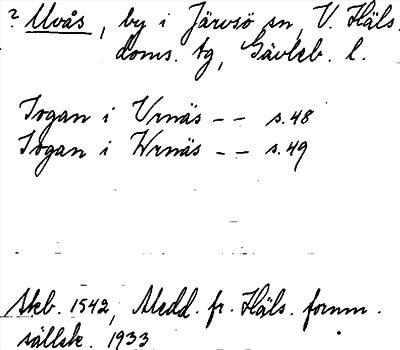 ? Uvås, by i Järvsö sn, V. Häls.
doms. tg, Gävleb. l.
Ingan i Vrnäs -- s. 48
Ingan i Wrnäs -- s. 49
Skb. 1542, Medd. fr. Häls. fornm.
sällsk. 1933